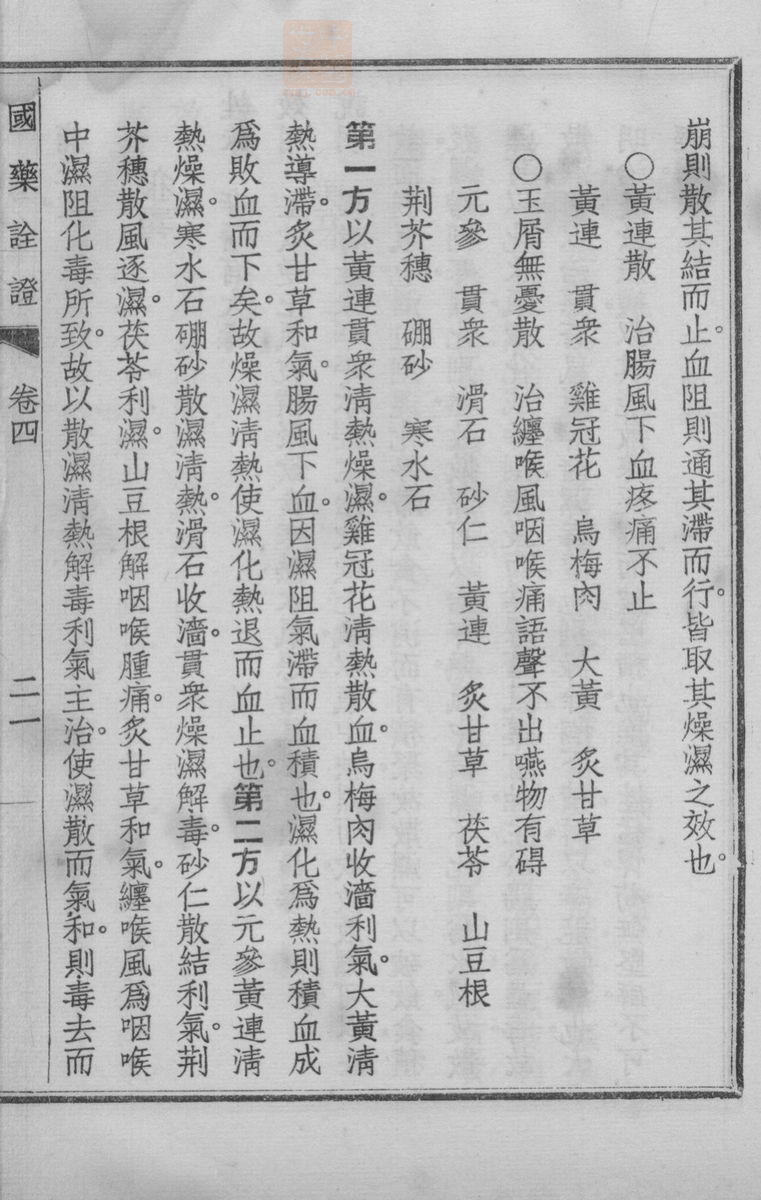 崩則散其結而止。血阻則通其滯而行。皆取其燥濕之效也。
〇黃連散　治腸風下血疼痛不止
黃連　貫衆　雞冠花　烏梅肉　大黃　炙甘草
〇玉屑無憂散　治纏喉風咽喉痛語聲不出嚥物有碍
元參　貫衆　滑石　砂仁　黃連　炙甘草　茯苓　山豆根
荆芥穗　硼砂　寒水石
第一方以黃連貫衆淸熱燥濕。雞冠花淸熱散血。烏梅肉收濇利氣。大黃淸
熱導滯。炙甘草和氣。腸風下血。因濕阻氣滯而血積也。濕化爲熱則積血成
爲敗血而下矣。故燥濕淸熱使濕化熱退而血止也。第二方以元參黃連淸
熱燥濕。寒水石硼砂散濕淸熱。滑石收濇。貫衆燥濕解毒。砂仁散結利氣。荆
芥穗散風逐濕。茯苓利濕。山豆根解咽喉腫痛。炙甘草和氣。纏喉風爲咽喉
中濕阻化毒所致。故以散濕淸熱解毒利氣主治。使濕散而氣和。則毒去而
國藥詮證　卷四　二一